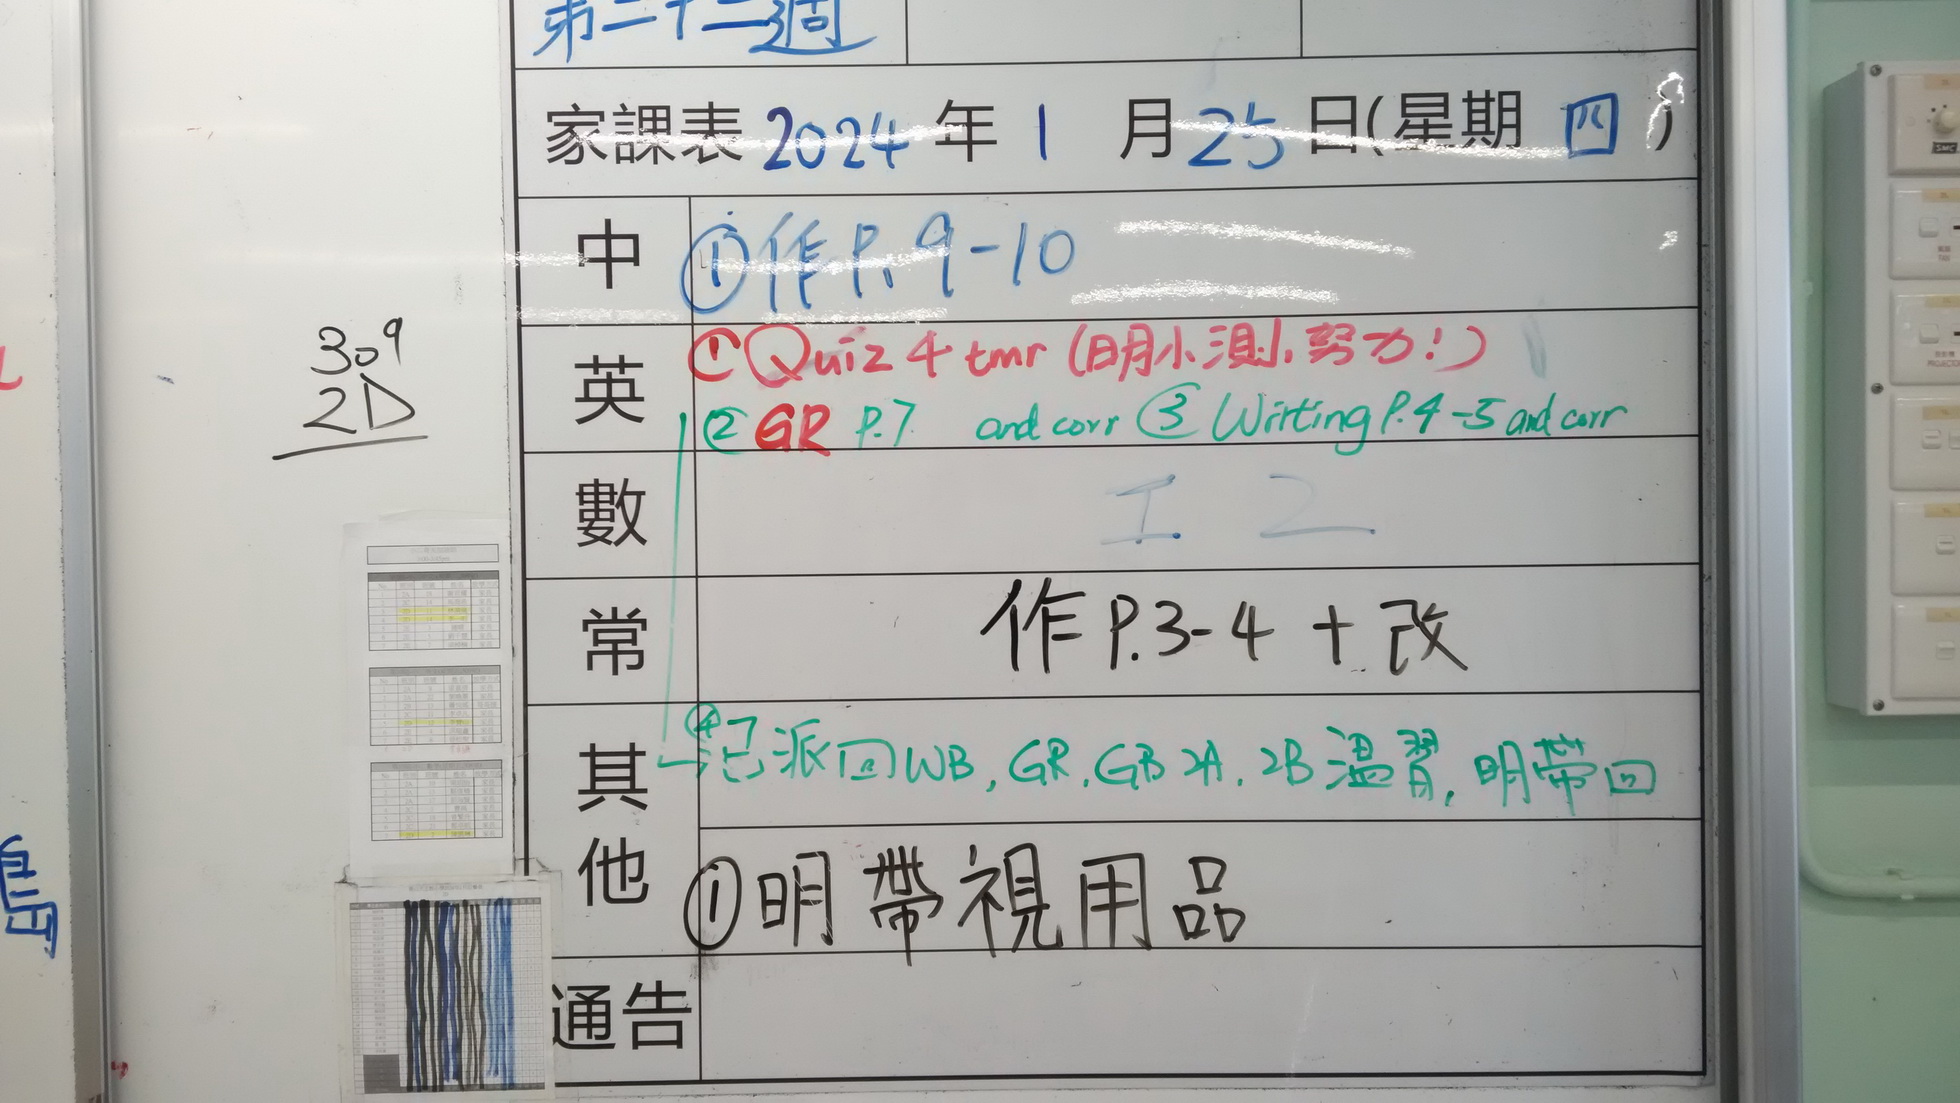 第二十二週
家課表 2024 年 1 月 25 日(星期 四 )
309
2D
中 ①作P.9-10
英 ①Quiz 4 tmr (明小測,努力!)
②GR P.7 and corr ③ Wirting P.4-5 and corr
數 工 2
常 作P.3-4 + 改
其他 ④已派回WB, GR, GB 2A, 2B 溫習, 明帶回
①明帶視用品
通告